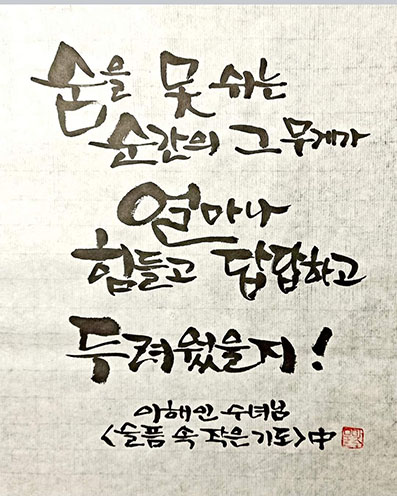 숨을 못 쉬는
순간의 그 무게가
얼마나
힘들고 답답하고
두려웠을지!
이해인 수녀님
<슬픔 속 작은 기도> 中